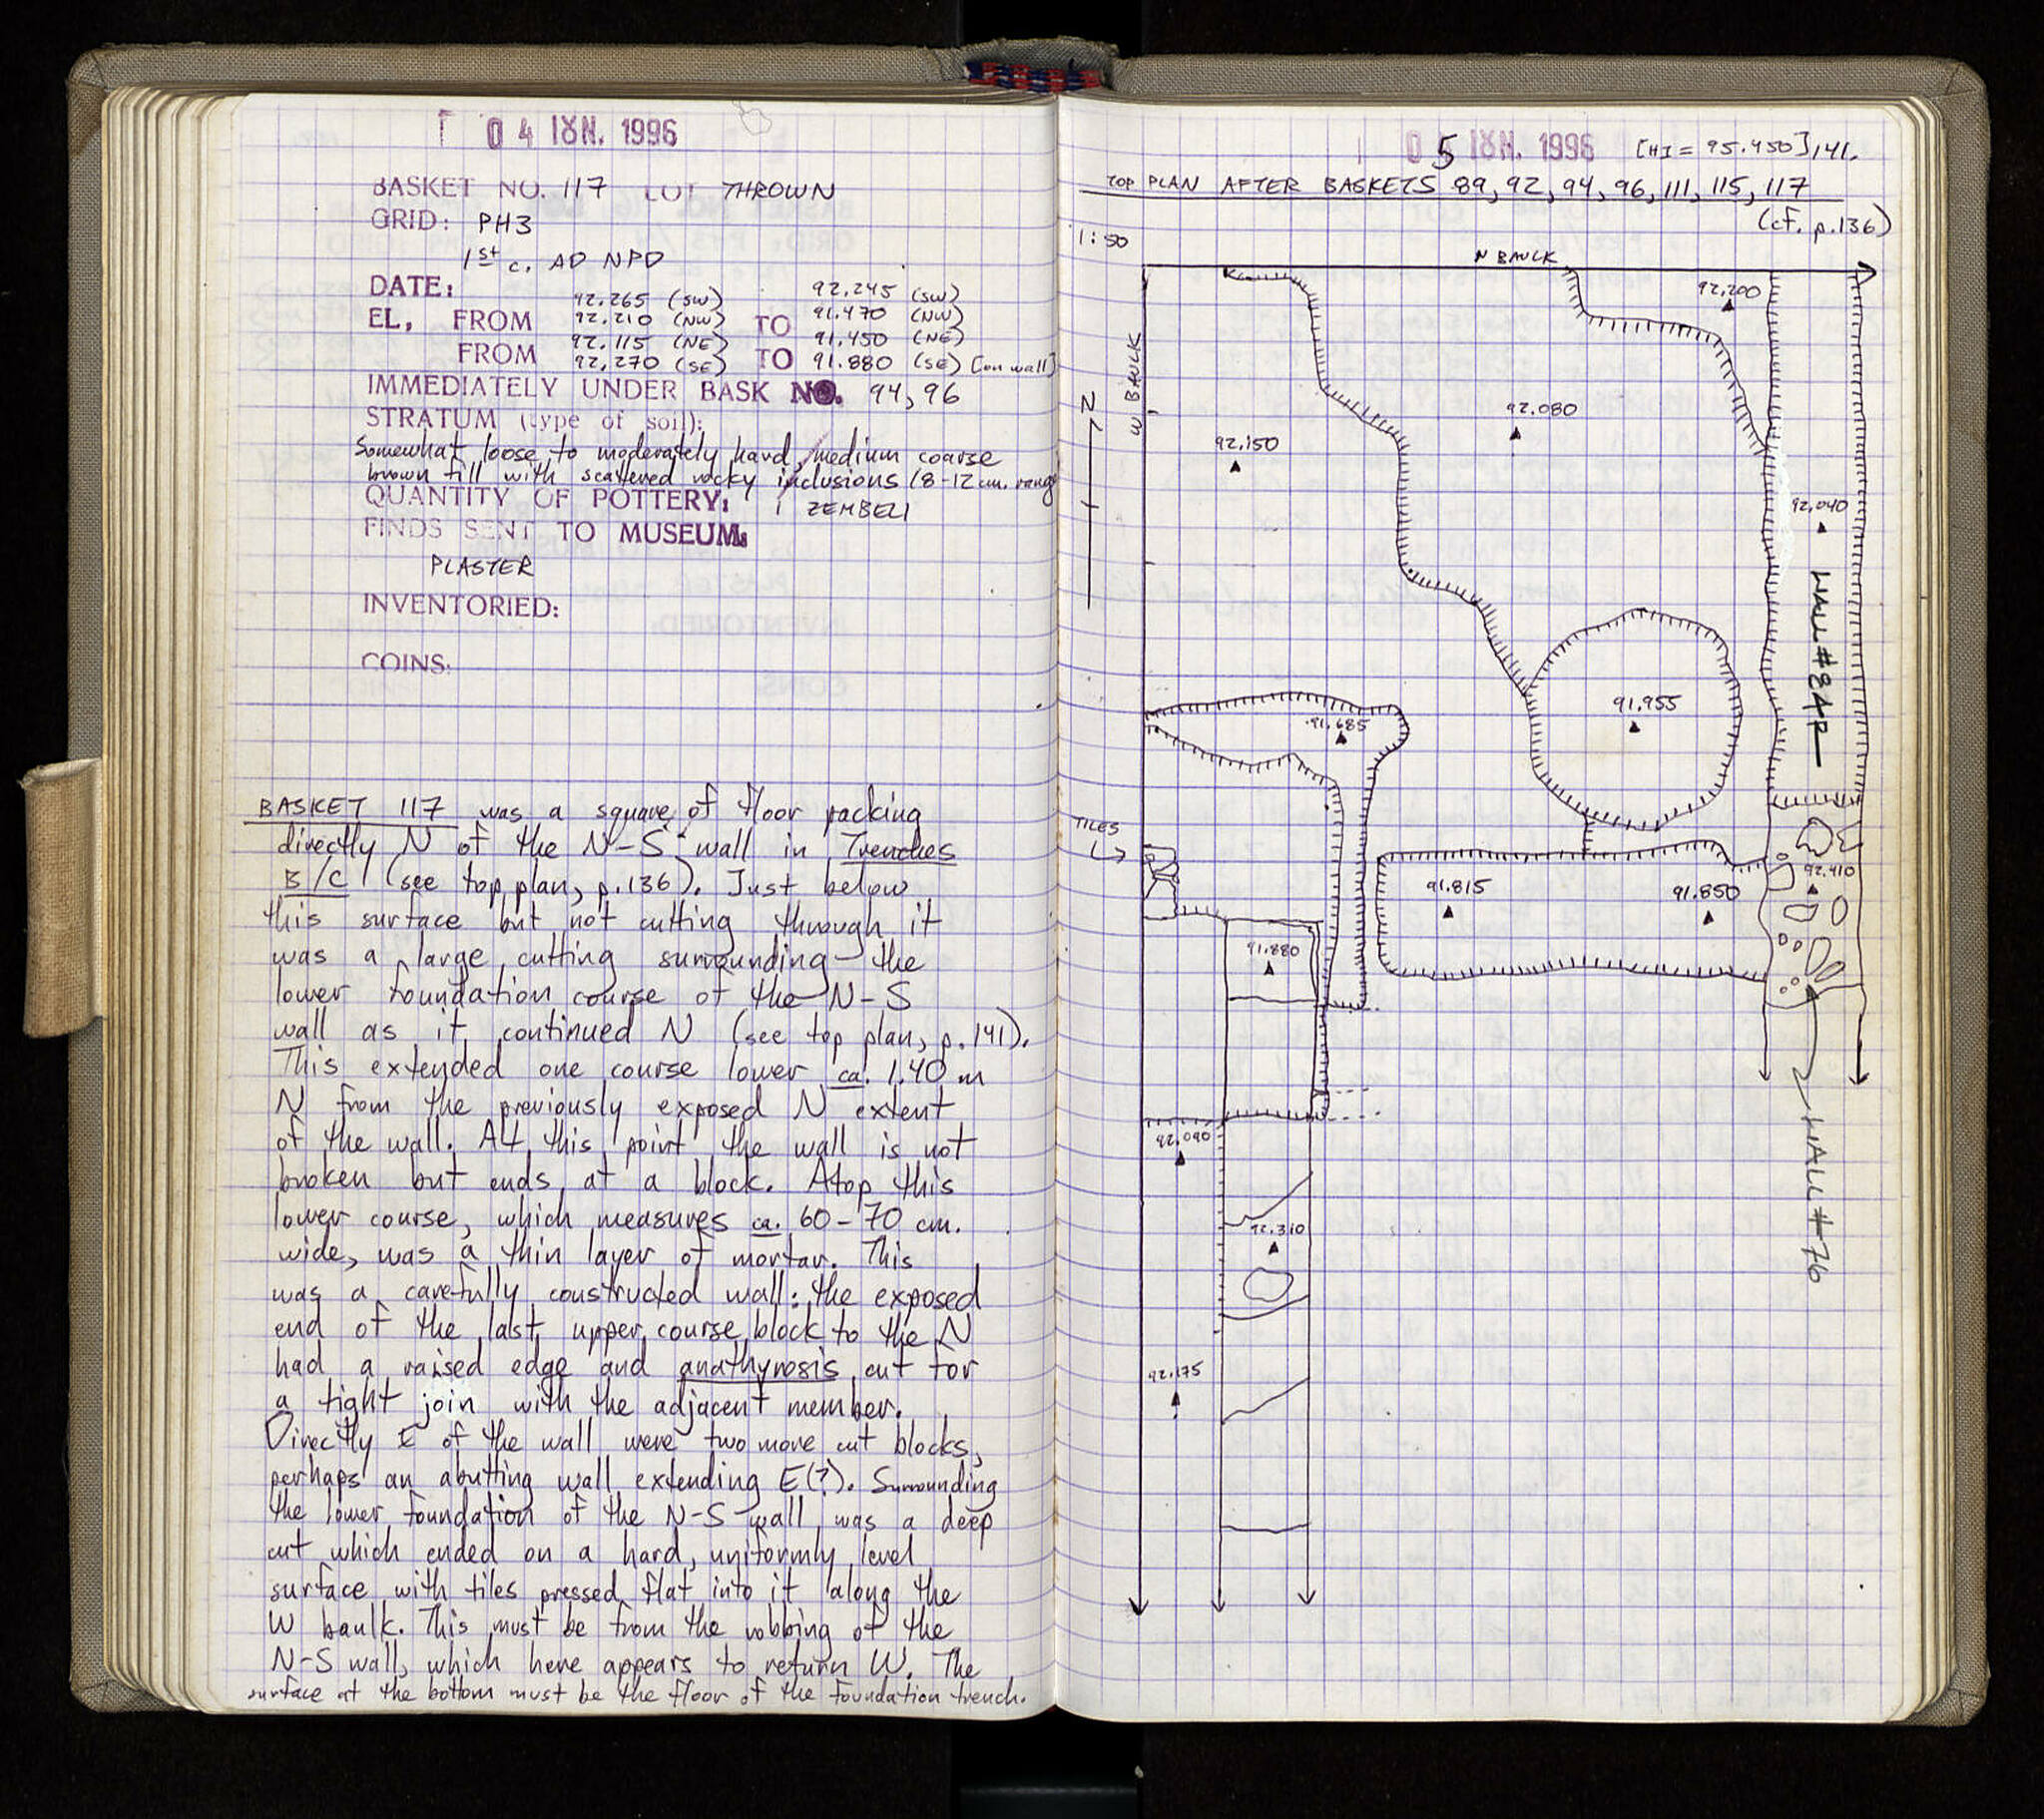 04 ΙΟΥΝ. 1996
BASKET NO. 117 LOT THROWN
GRID: PH3
1st c. AD NPD
DATE:
92.265 (SW) 92.245 (SW)
EL, FROM 92.210 (NW) TO 91.470 (NW)
92.115 (NE) 91.450 (NE)
FROM 92.270 (SE) TO 91.880 (SE) [on wall]
IMMEDIATELY UNDER BASK NO. 94, 96
STRATUM (type of soil):
Somewhat loose to moderately hard, medium coarse
brown fill with scattered rocky inclusions (8-12 cm. range
QUANTITY OF POTTERY: 1 ZEMBELI
FINDS SENT TO MUSEUM:
PLASTER
INVENTORIED:
COINS:
BASKET 117 was a square of floor packing
directly N of the N-S wall in Trenches
B/C (see top plan, p.136). Just below
this surface but not cutting through it
was a large cutting surrounding the
lower foundation course of the N-S
wall as it continued N (see top plan, p.141).
This extended one course lower ca. 1.40 m
N from the previously exposed N extent
of the wall. At this point the wall is not
broken but ends at a block. Atop this
lower course, which measures ca. 60-70 cm.
wide, was a thin layer of mortar. This
was a carefully constructed wall: the exposed
end of the last upper course block to the N
had a raised edge and anathyrosis cut for
a tight join with the adjacent member.
Directly E of the wall were two more cut blocks,
perhaps an abutting wall extending E(?). Surrounding
the lower foundation of the N-S wall was a deep
cut which ended on a hard, uniformly level
surface with tiles pressed flat into it along the
W baulk. This must be from the robbing of the
N-S wall, which here appears to return W. The
surface at the bottom must be the floor of the foundation trench.
05 ΙΟΥΝ. 1996 [HI = 95.450] 141.
TOP PLAN AFTER BASKETS 89, 92, 94, 96, 111, 115, 117
(cf. p.136)
1:50
N BAULK
92.200
W BAULK
N
92.080
92.150
92.040
WALL #84P
91.955
91.685
TILES
92.410
91.815
91.850
91.880
92.090
WALL #76
92.310
92.175